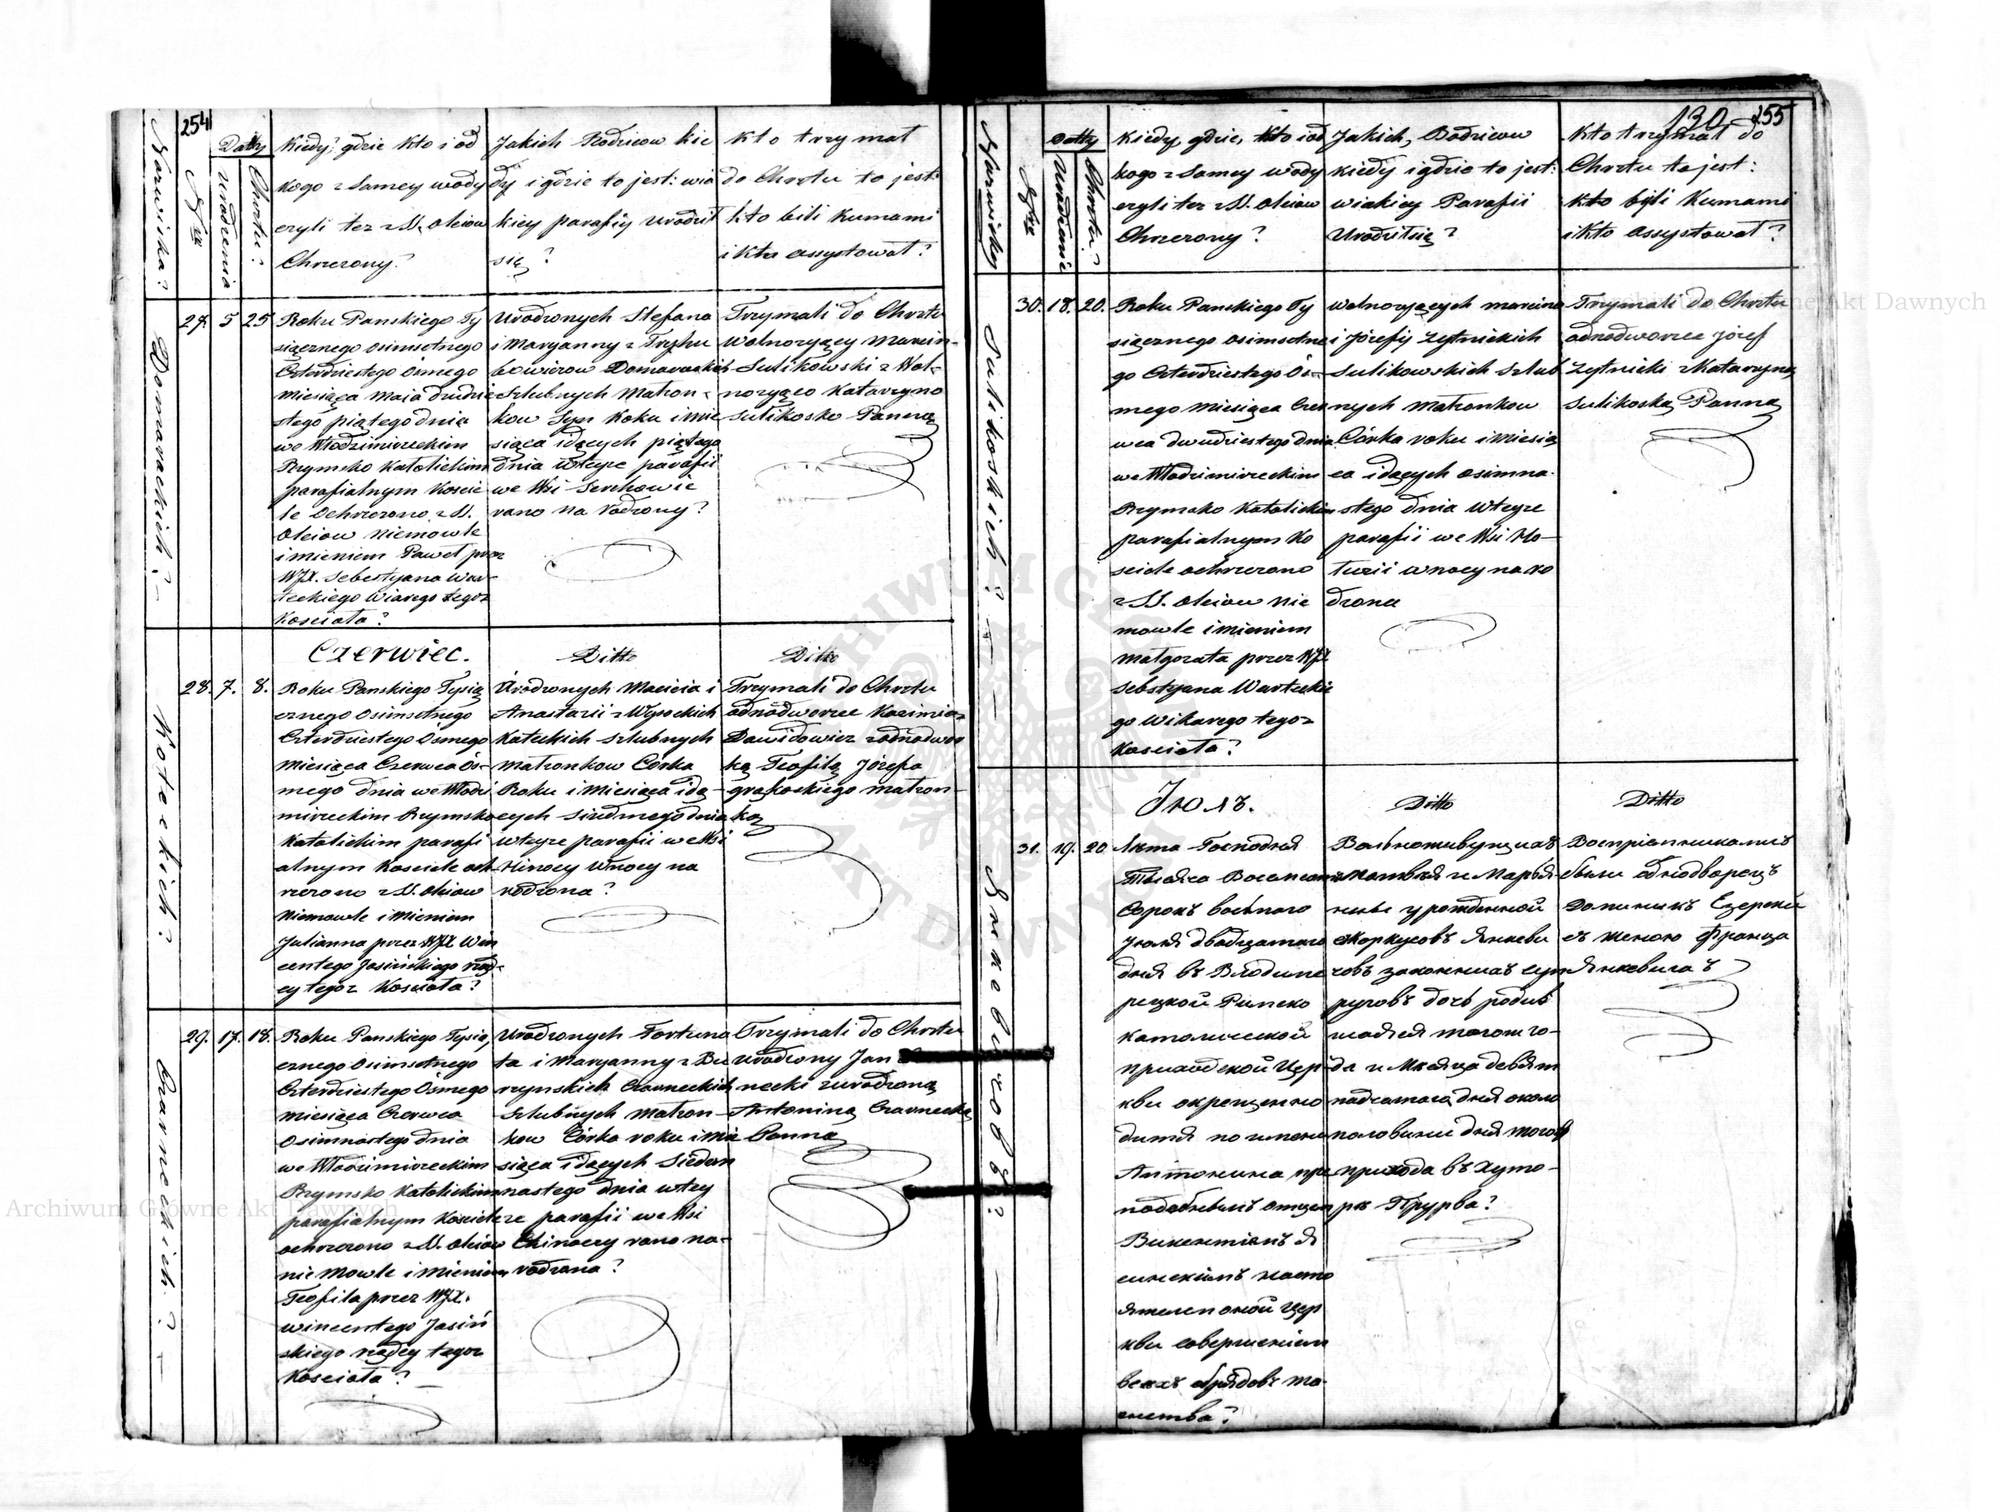 254
Nazwiska?
Nra
Datty
Urodzenia
Chrztu?
Kiedy? gdzie kto i od
kogo z Samey wody
czyli też z SS. Oleiow
Chrzczony?
Jakich Rodzicow kie
dy i gdzie to jest: wia
kiey parafiy urodził
się?
Kto trzymał
do Chrztu to jest:
kto bili Kumami
i kto assystował?
Domarackich?
27. 5 25
Roku Panskiego Ty
siącznego osimsetnego
Czterdziestego Osmego
miesiąca maia dwudzie
stego piątego dnia
we Włodzimirzeckim
Rzymsko Katolickim
parafialnym Koscie
le ochrzczono z SS.
Oleiow niemowle
imieniem Paweł przez
WJX. Sebestyana War-
teckiego Wikarego tegoz
Kosciota?
Urodzonych Stefana
i Maryanny z
Domarackich
Szlubnych Matron-
kow Syn Roku i mie
siąca idących piątego
dnia wteyze parafii
we Wsi
rano na rodzony?
Trzymali do Chrztu
Wolnozyący Marcin
Sulikowski z Wol-
nozyąco Katarzyno
Sulikosko Panną
Koteckich?
Czerwiec.
Ditto
Ditto
28. 7. 8.
Roku Panskiego Tysią
cznego Osimsetnego
Czterdziestego Osmego
Miesiąca Czerwca Os-
mego dnia we Włodzi
mirzeckim Rzymsko
Katolickim parafi
alnym Kosciele och
rzczono z SS. Oleiow
Niemowle imieniem
Julianna przez WJX Win
centego Jasińskiego rząd-
cy tegoz Kosciota?
Urodzonych Macieia i
Anastazii z Wysockich
Koteckich Szlubnych
matronkow Corka
Roku i Miesiąca idą-
cych siodmego dnia
wteyze parafii we Wsi
Hinoczy wnocy na
rodzona?
Trzymali do Chrztu
odnodworzec Kazimierz
Dawidowicz z odnodwor
ką Teofilą Jozefa
matron-
ką
Czarneckich?
29. 17. 18.
Roku Panskiego Tysią
cznego Osimsetnego
Czterdziestego Osmego
miesiąca Czerwca
Osimnastego dnia
we Włodzimirzeckim
Rzymsko Katolickim
parafialnym Kosciele
ochrzczono z SS. Oleiow
niemowle imieniem
Teofila przez WJX.
Wincentego Jasiń
skiego rządcy tegoz
Kosciota?
Urodzonych Fortuna
ta i Maryanny z Bu
rzynskich Czarneckich
Szlubnych matron-
kow Córka roku i mie
siąca idących siedem
nastego dnia wtey
ze parafii we Wsi
Chinoczy rano na-
rodzona?
Trzymali do Chrztu
urodzony Jan
necki z urodzoną
Antoniną Czarnecką
Panną
130
255
Nazwiska
Nra
Datty
Urodzenia
Chrztu?
Kiedy, gdzie, kto i od
kogo z Samey wody
czyli tez z SS. Oleiow
Chrzczony?
Jakich, Rodzicow
kiedy i gdzie to jest:
wiakiey Parafii
Urodził się?
Kto trzymał do
Chrztu to jest:
kto byli Kumami
i kto assystował?
Sulikoskich?
30. 18. 20.
Roku Panskiego Ty
siącznego osimsetne
go Czterdziestego Os-
mego Miesiąca Czer
wca dwudziestego dnia
we Włodzimirzeckim
Rzymsko Katolickim
parafialnym Ko
sciele ochrzczono
z SS. Oleiow Nie
mowle imieniem
Małgorzata przez WJX
Sebstyana Warteckie
go Wikarego tegoz
Kosciota?
Wolnozyących Marcina
i Józefy z Zytnickich
Sulikowskich Szlub
nych Matronkow
Córka roku i miesią
ca idących osimna-
stego dnia wteyze
parafii we Wsi Ho-
wnocy na ro
dzona
Trzymali do Chrztu
odnodworzec Józef
Zytnicki z Katarzyną
Sulikoską Panną
Янкевичовъ?
Іюль.
Ditto
Ditto
31. 19. 20
Лѣта Господня
Тысяча Восемсотъ
Сорокъ восьмаго
Іюля двадцатаго
дня въ Владими
рецкой Римско
католической
приходской Цер
кви окрещенно
дитя по имени
Антонина пре
подобнымъ отцем
Викентіемъ Я
синскимъ насто
ятелемъ оной Цер
кви совершеніем
всехъ обрядовъ та
инства?
Вольноживущихъ
Матвѣя и Марья
нны урожденной
Янкеви
човъ законныхъ суп
руговъ дочь родив
шаяся тогож го-
да и Мѣсяца девят
надцатаго дня около
половины дня тогож
прихода въ Хуто-
рѣ
Воспріемниками
были однодворецъ
Доминикъ Езерски
съ женою Франца
Янкевича